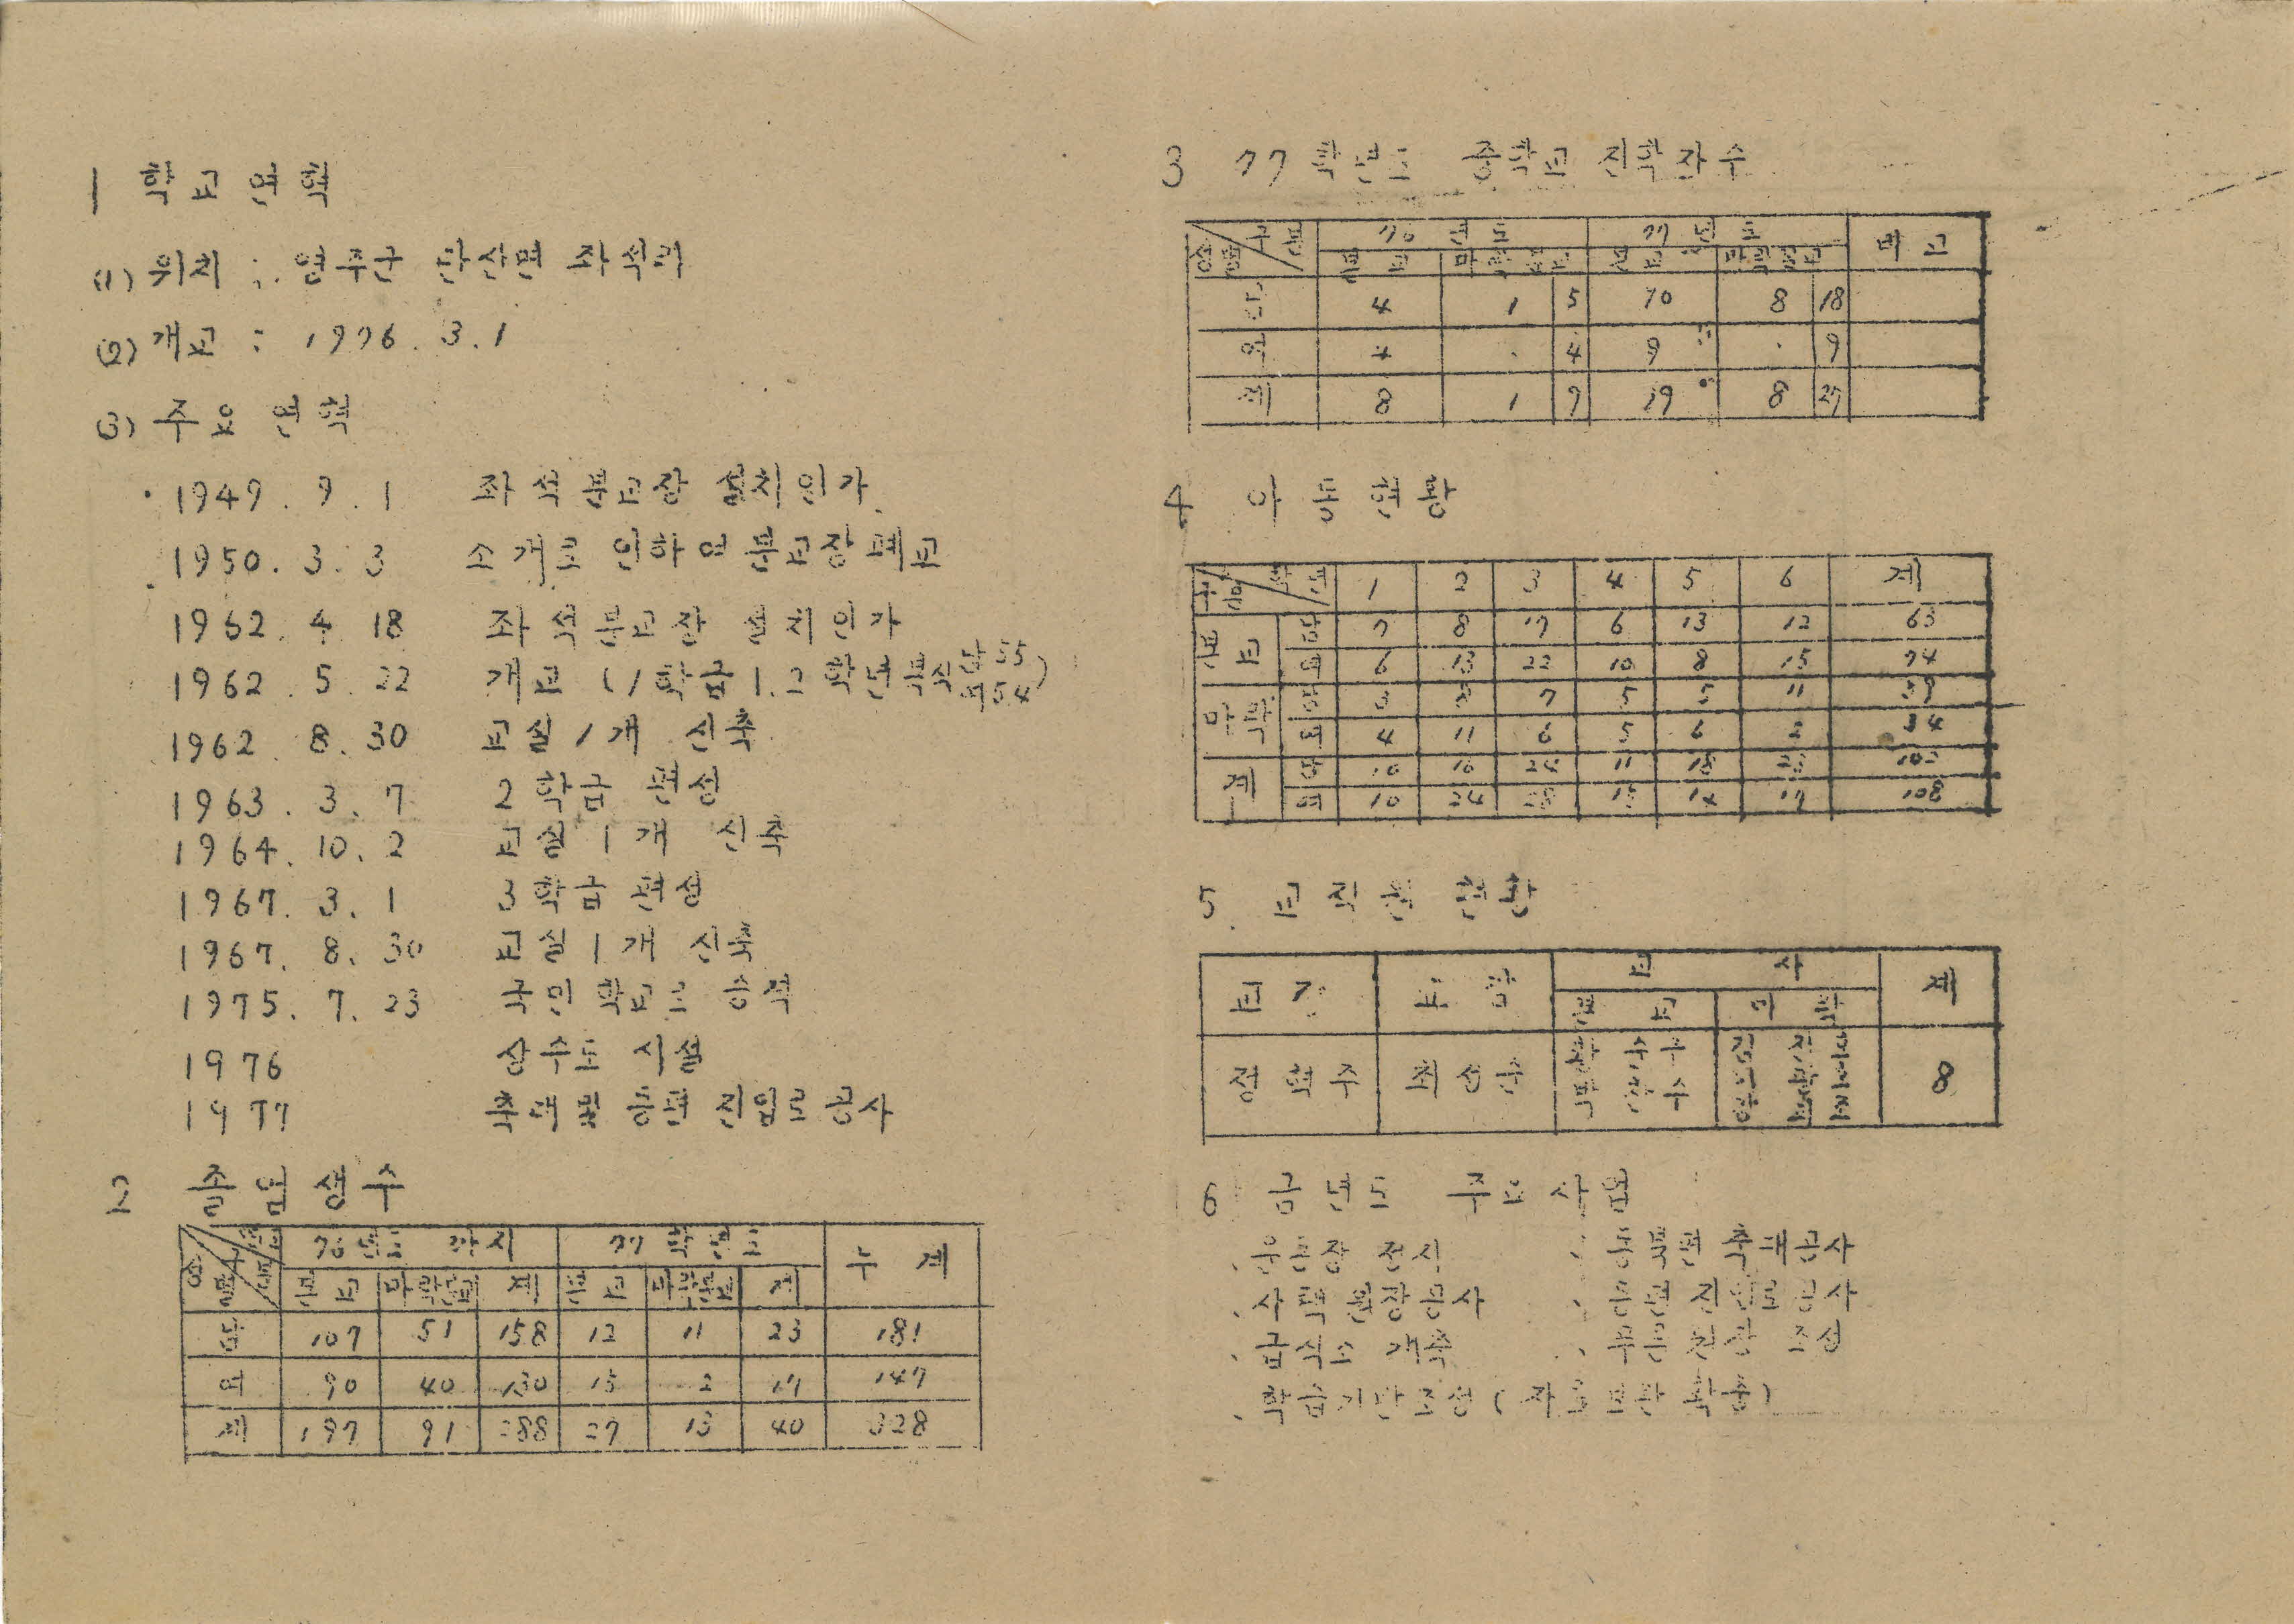 1 학교연혁
(1) 위치 : 영주군 단산면 좌석리
(2) 개교 : 1976. 3. 1
(3) 주요 연혁
1949. 9. 1 좌석분교장 설치인가
1950. 3. 3 소개로 인하여 분교장 폐교
1962. 4 18 좌석분교장 설치인가
1962. 5. 22 개교 (1학급 1.2학년 남55 여54)
1962 8. 30 교실 1개 신축
1963. 3. 7 2학급 편성
1964. 10. 2 교실 1개 신축
1967. 3. 1 3학급 편성
1967. 8. 30 교실 1개 신축
1975. 7. 23 국민학교로 승격
1976 상수도 시설
1977 축대 및 동편 진입로 공사
2 졸업생수
76년도 까지 77학년도 누계
본교 마락분교 계 본교 마락분교 계
남 107 51 158 12 11 23 181
여 90 40 130 15 2 17 147
계 197 91 288 27 13 40 328
3 77학년도 중학교 진학자수
성별 구분 76년도 77년도 비고
본교 마락분교 본교 마락분교
남 4 1 5 10 8 18
여 4 . 4 9 . 9
계 8 1 9 19 8 27
4 아동현황
1 2 3 4 5 6 계
본교 남 7 8 17 6 13 12 63
여 6 13 22 10 8 15 74
마락 남 3 7 5 5 11 39
여 4 11 6 5 6 2 34
계 남 10 16 24 11 18 23 102
여 10 24 28 15 14 17 108
5 교직원 현황
교장 교감 교사 계
본교 마락
8
6 금년도 주요사업
. 운동장 전시 . 동북편 축대공사
. 사택 담장공사 . 동편 진입로공사
. 급식소 개축 . 동산 조성
. 학습기단조성 (자료보관 확충)